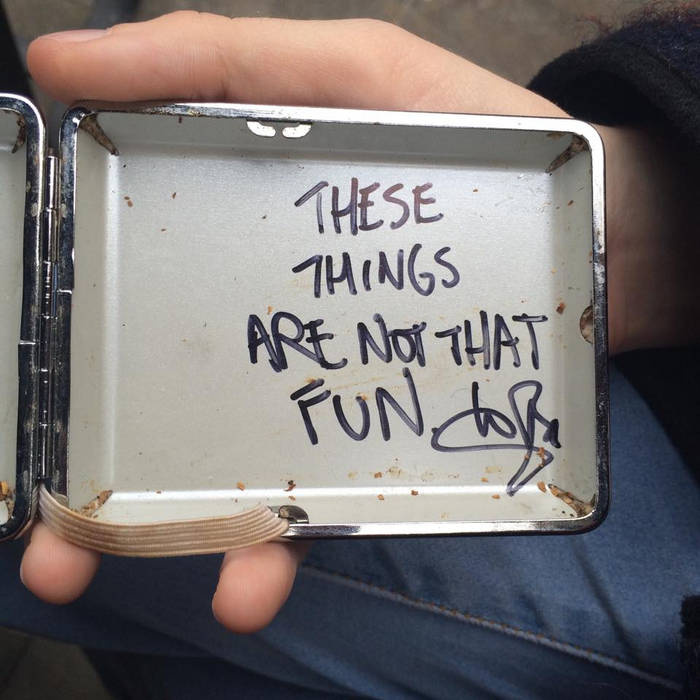 THESE
THINGS
ARE NOT THAT
FUN